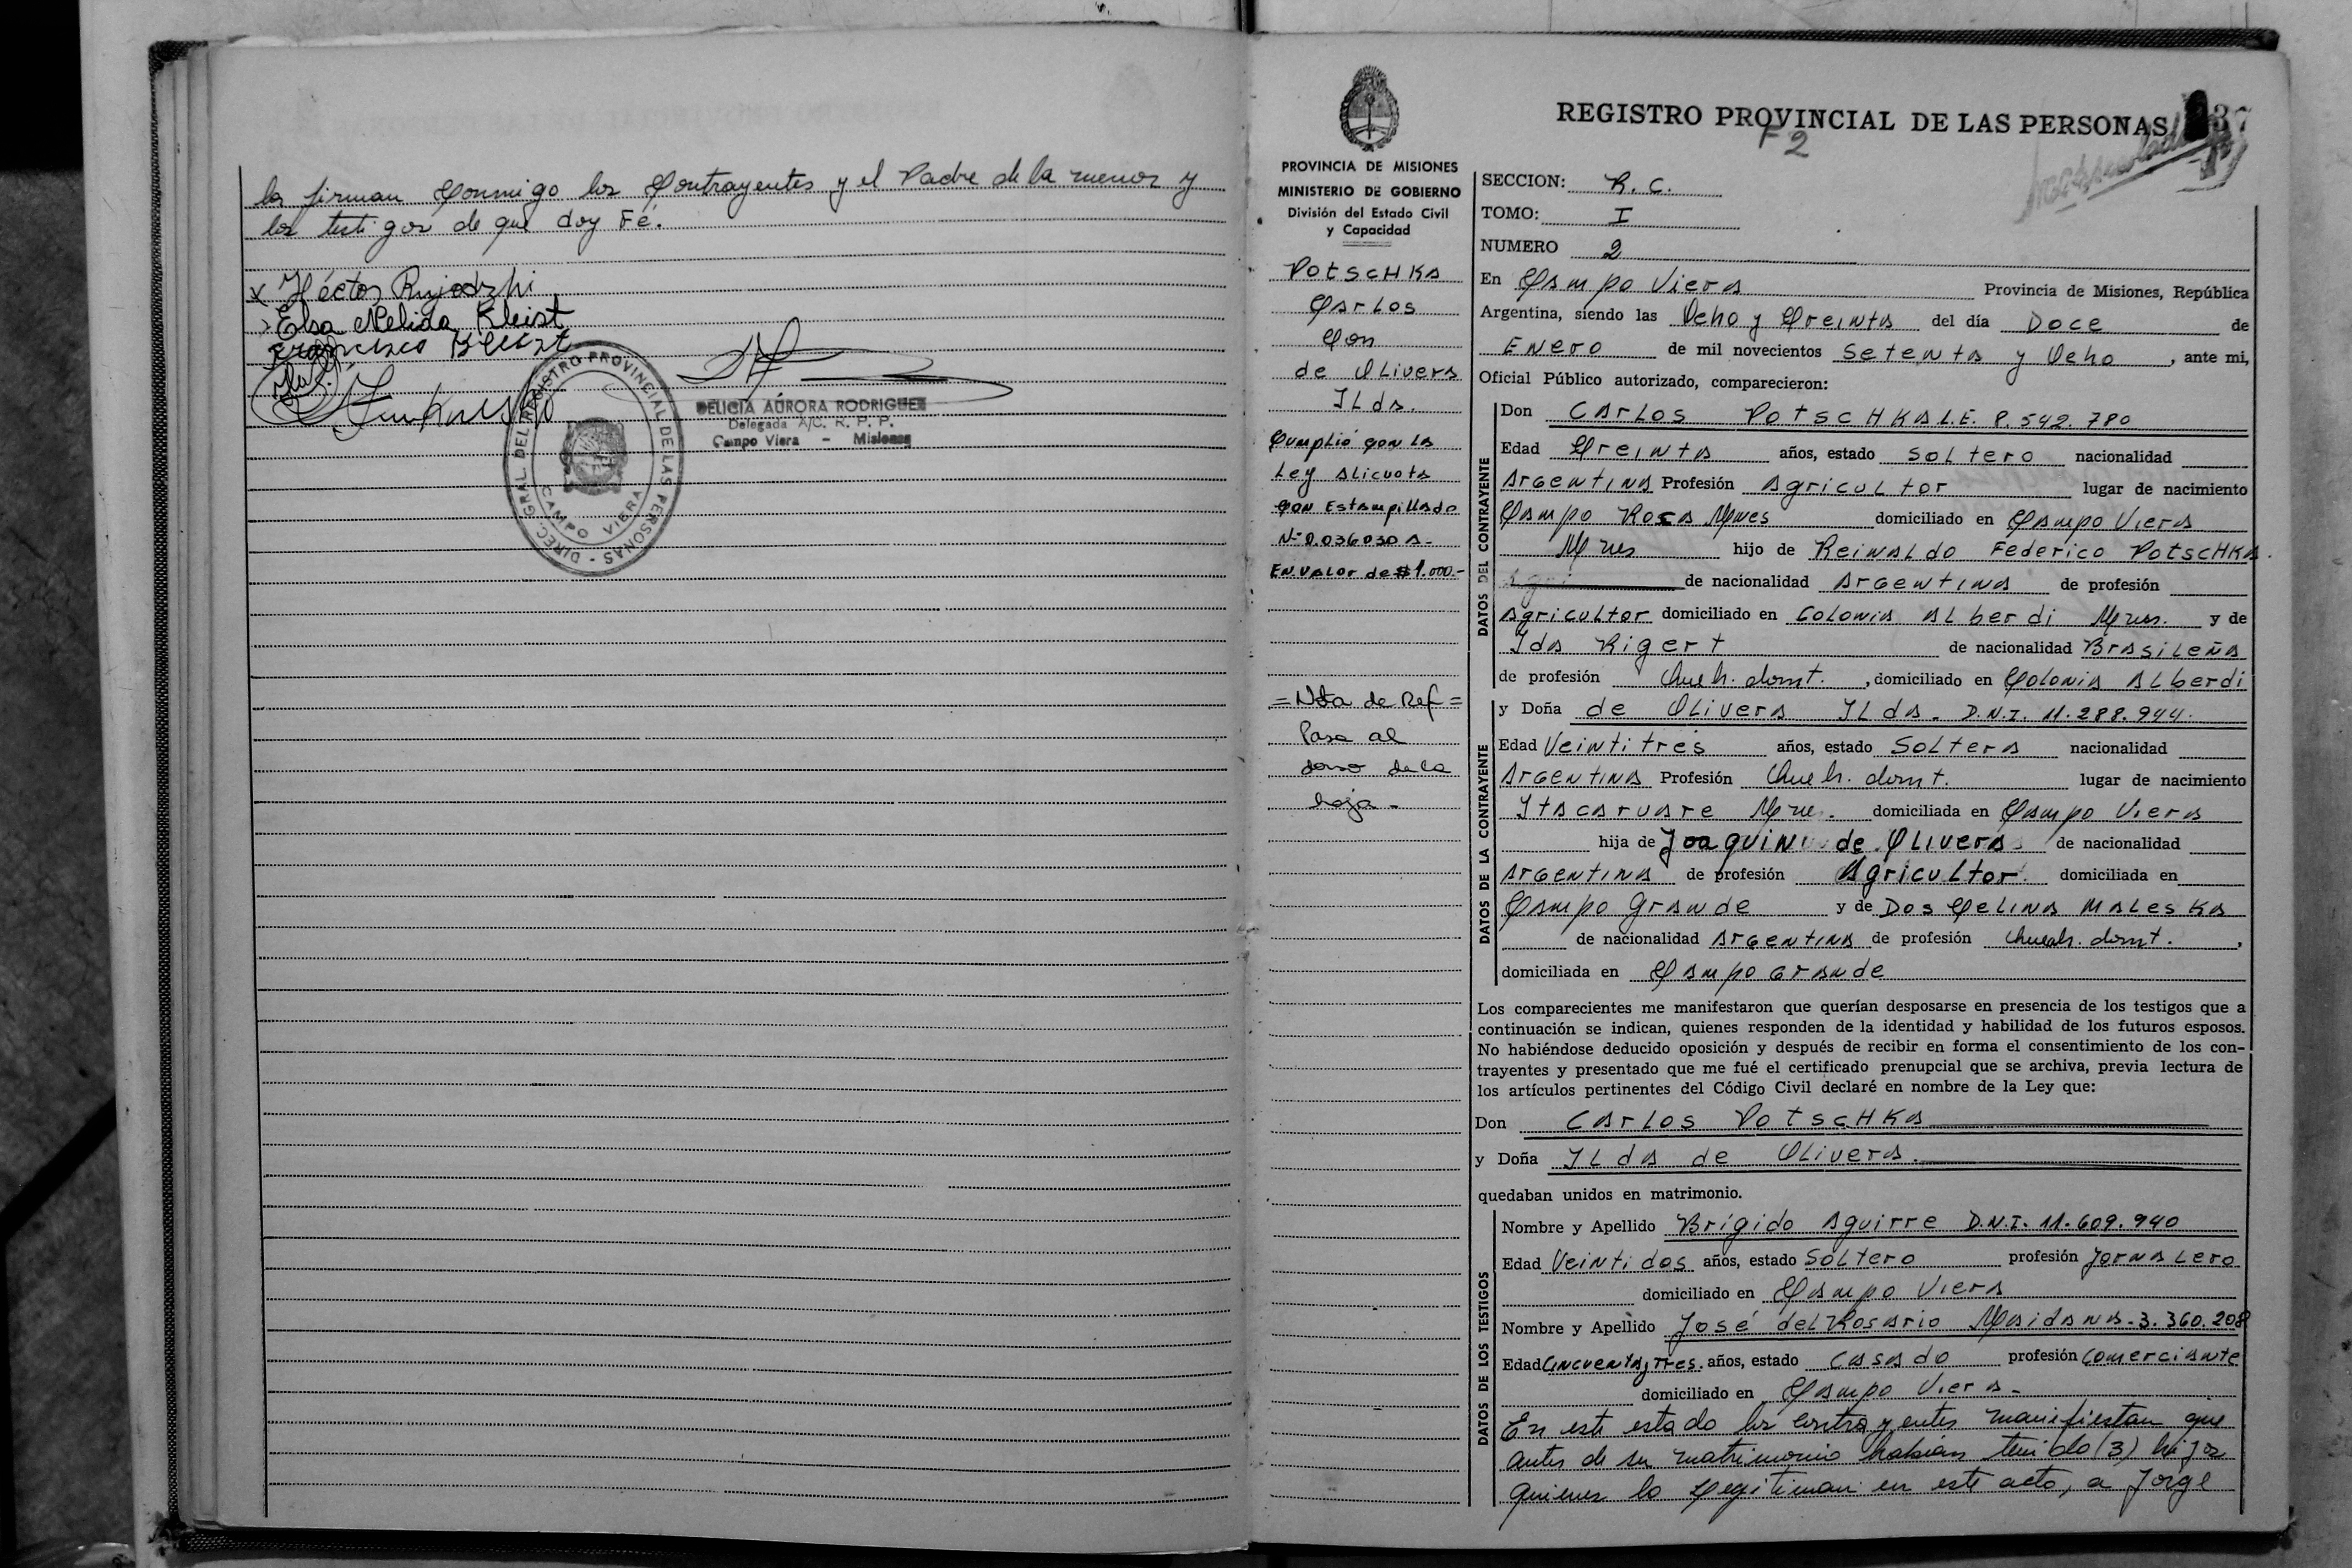 la firman Conmigo los Contrayentes y el Padre de la menor y
los testigos de que doy Fé.
x Héctor
Elsa Nelida Kleist
Francisco Kleist
DIREC. GRAL. DEL REGISTRO PROVINCIAL DE LAS PERSONAS -
CAMPO VIERA
DELICIA AURORA RODRIGUEZ
Delegada A/C. R. P. P.
Campo Viera - Misiones
PROVINCIA DE MISIONES
MINISTERIO DE GOBIERNO
División del Estado Civil
y Capacidad
Potschka
Carlos
Con
de Olivera
Ilda.
Cumplió con la
Ley alicuota
con Estampillado
Nº 0.036030 A-
En valor de $ 1.000.-
=Nota de Ref=
Pasa al
dorso de la
hoja-
REGISTRO PROVINCIAL DE LAS PERSONAS 37
F 2
SECCION: R. C.
TOMO: I
NUMERO 2
En Campo Viera Provincia de Misiones, República
Argentina, siendo las Ocho y Treinta del día Doce de
Enero de mil novecientos Setenta y Ocho, ante mi,
Oficial Público autorizado, comparecieron:
DATOS DEL CONTRAYENTE
Don Carlos Potschka L.E. 8.542.780
Edad Treinta años, estado Soltero nacionalidad
Argentina Profesión Agricultor lugar de nacimiento
Campo Roca Mnes domiciliado en Campo Viera
Mnes hijo de Reinaldo Federico Potschka.
de nacionalidad Argentina de profesión
Agricultor domiciliado en Colonia Alberdi Mnes. y de
Ida Rigert de nacionalidad Brasileña
de profesión Queh. domt., domiciliado en Colonia Alberdi
DATOS DE LA CONTRAYENTE
y Doña de Olivera Ilda. D.N.I. 11.288.944.
Edad Veintitrés años, estado Soltera nacionalidad
Argentina Profesión Queh. domt. lugar de nacimiento
Itacaruare Mne. domiciliada en Campo Viera
hija de Joaquin de Olivera de nacionalidad
Argentina de profesión Agricultor. domiciliada en
Campo Grande y de Doscelina Maleska
de nacionalidad Argentina de profesión Queh. domt.,
domiciliada en Campo Grande
Los comparecientes me manifestaron que querían desposarse en presencia de los testigos que a
continuación se indican, quienes responden de la identidad y habilidad de los futuros esposos.
No habiéndose deducido oposición y después de recibir en forma el consentimiento de los con-
trayentes y presentado que me fué el certificado prenupcial que se archiva, previa lectura de
los artículos pertinentes del Código Civil declaré en nombre de la Ley que:
Don Carlos Potschka
y Doña Ilda de Olivera.
quedaban unidos en matrimonio.
DATOS DE LOS TESTIGOS
Nombre y Apellido Brígido Aguirre D.N.I. 11.609.940
Edad Veintidos años, estado Soltero profesión Jornalero
domiciliado en Campo Viera
Nombre y Apellido José del Rosario Maidana-3.360.208
Edad Cincuenta y Tres. años, estado Casado profesión Comerciante
domiciliado en Campo Viera-
En este estado los contrayentes manifiestan que
antes de su matrimonio habian tenido (3) hijos
quienes lo legitiman en este acto, a Jorge